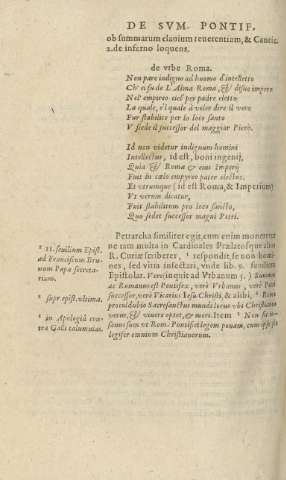 DE SVM. PONTIF.
ob summarum clavium reverentiam, & Cantic.
2. de inferno loquens.
de vrbe Roma.
Non pare indigno ad huomo d'intelletto
Ch'ei fu de L'Alma Roma, & di suo impero
Nel' empireo ciel per padre eletto
La quale, e'l quale à voler dire il vero
Fur stabilite per lo loco santo
V siede il successor del maggior Piero.
Id non videtur indignum homini
Intellectus, id est, boni ingenij,
Quia & Romæ & eius Imperij
Fuit in cælo empyreo pater electus.
Et utrumque (id est Roma, & Imperium)
Vt verum dicatur,
Fuit stabilitum pro loco sancto,
Quo sedet successor magni Petri.
Petrarcha similiter egit, cum enim moneretur
ne tam multa in Cardinales Prælatosque
R. Curiæ scriberet, respondit, se non homines,
sed vitia insectari, vnde lib. 9. senilium
Epistolar.
ac Romanus est Pontifex, verè Vrbanus, verè
successor, verè Vicarius Iesu Christi, & alibi,
& vivere optet, & mori. Item
legifer omnium Christianorum.
11. senilium Epist.
ad Franciscum Brunum
Papæ secretarium.
supr. epist. vltima.
in Apologia contra
Galli calumnias.